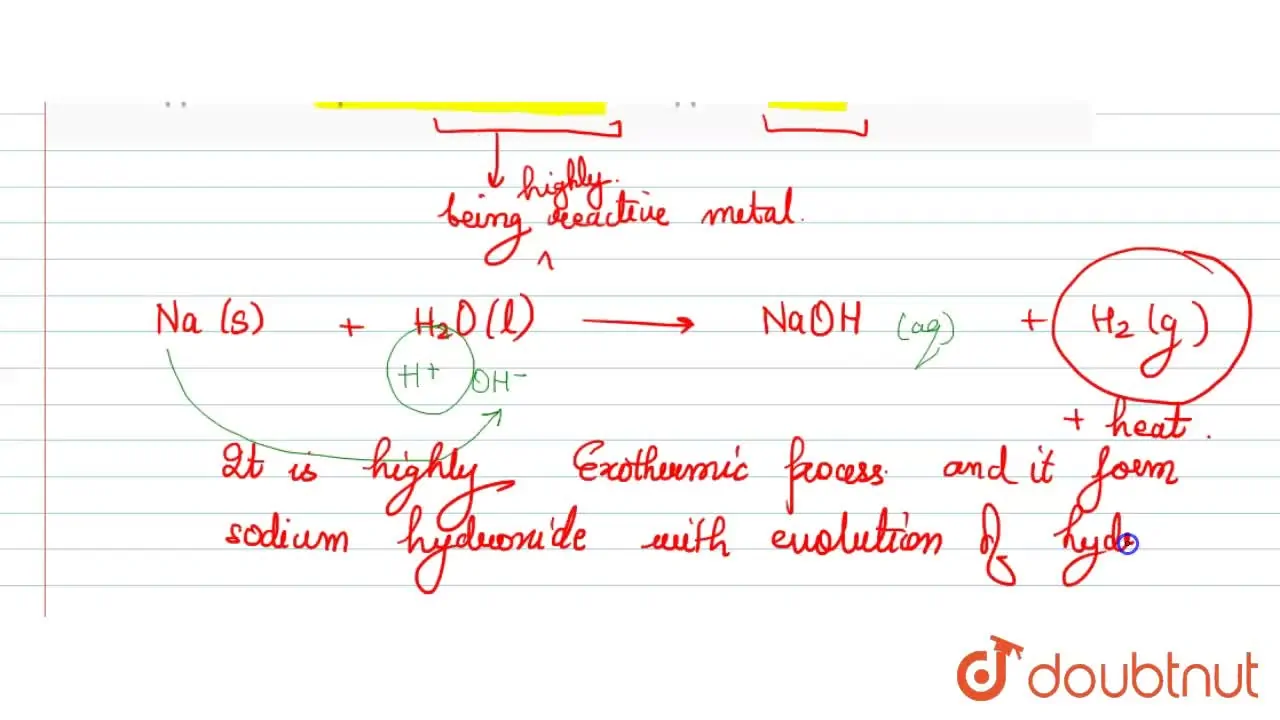 highly.
being reactive metal.
Na (s) + H₂O (l) → NaOH (aq) + H₂ (g)
H⁺ OH⁻
+ heat.
It is highly Exothermic process. and it form
sodium hydroxide with evolution of hyd
doubtnut